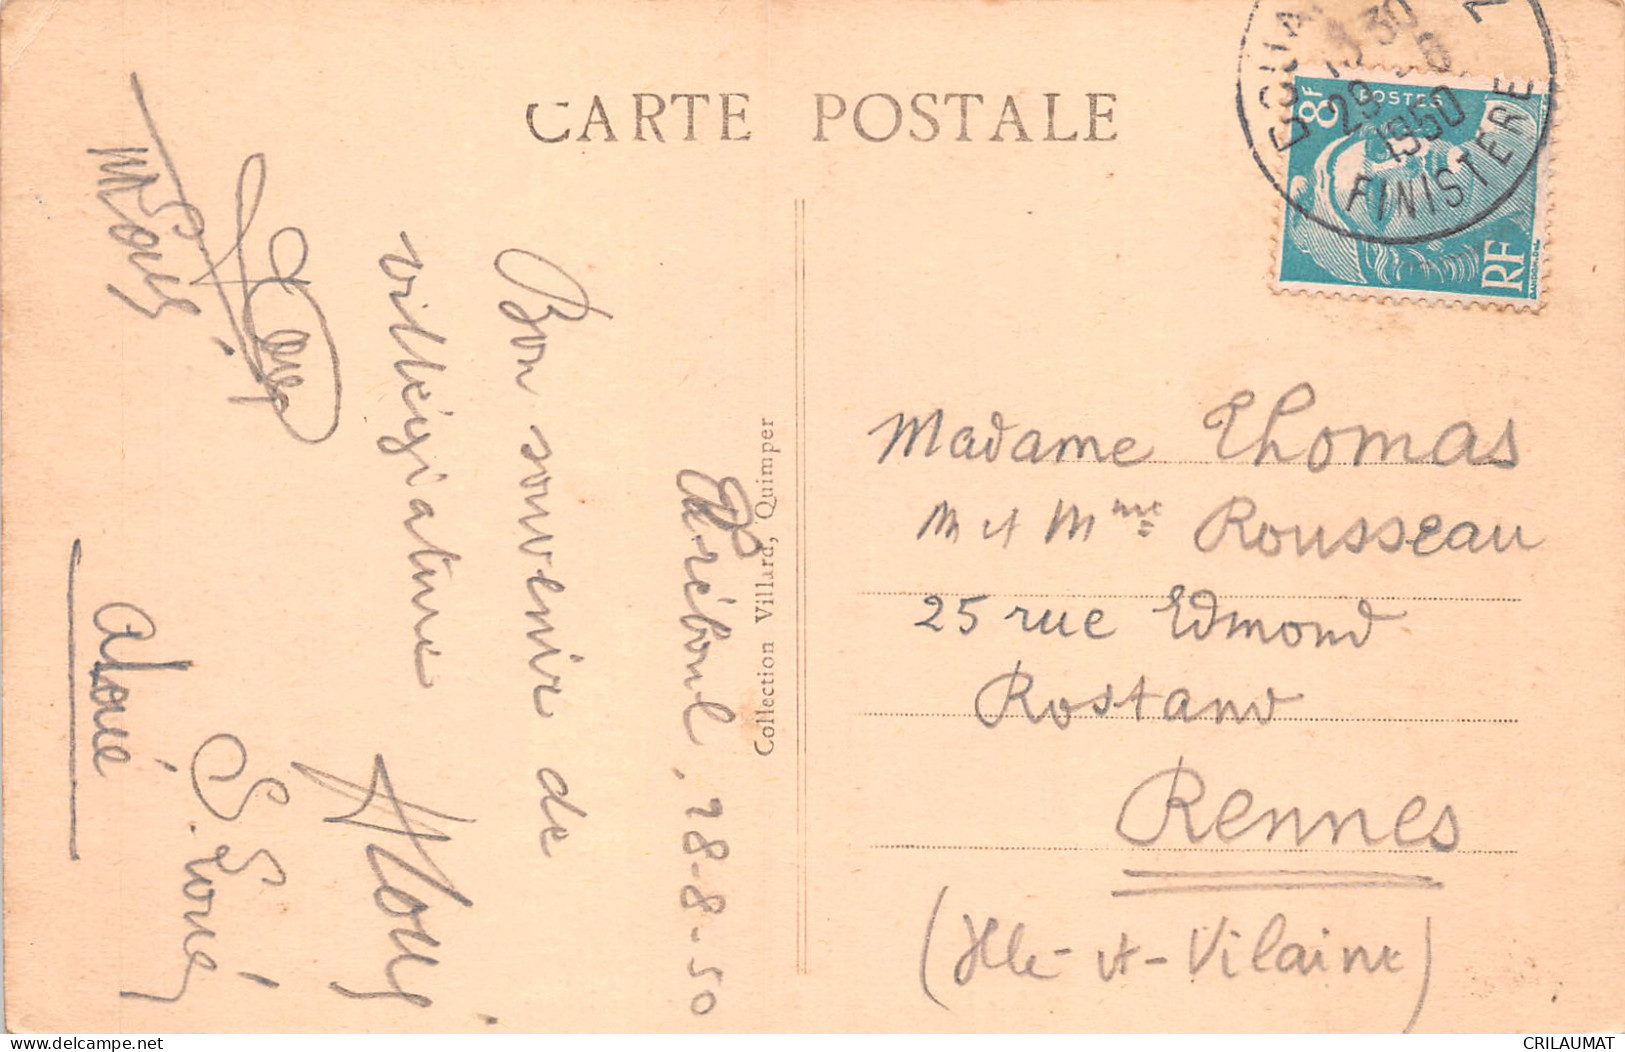 CARTE POSTALE
30
29 8
1950
FINISTERE
8F
POSTES
RF
Tréboul, 28-8-50
Bon souvenir de
villégiature
Collection Villard, Quimper
Madame Thomas
M et Mme Rousseau
25 rue Edmond
Rostand
Rennes
(Ille-et-Vilaine)
delcampe.net
CRILAUMAT